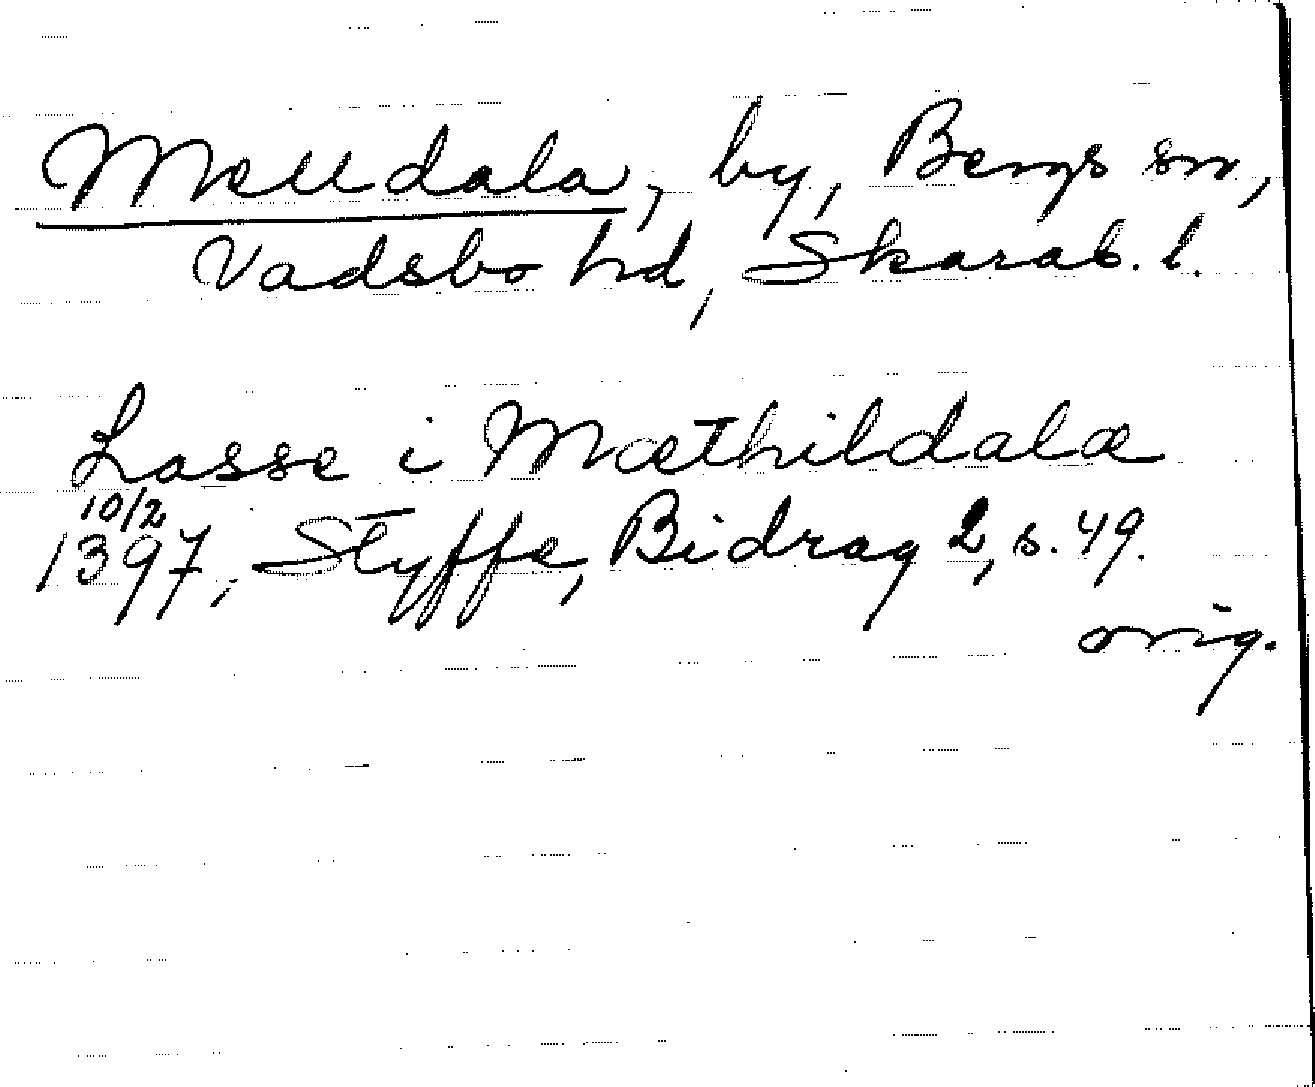 Melldala, by, Bergs sn,
Vadsbo hd, Skarab. l.
Lasse i Mæthildalæ
10/2
1397, Styffe, Bidrag 2, s. 49.
orig.